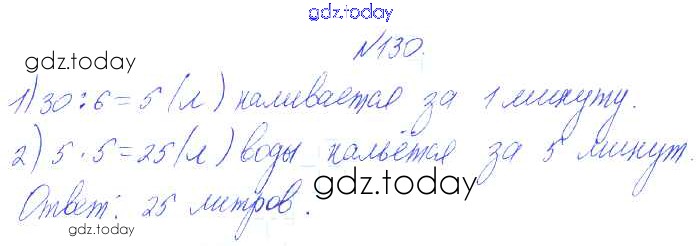 gdz.today
№130.
gdz.today
1) 30 : 6 = 5 (л) наливается за 1 минуту.
2) 5 · 5 = 25 (л) воды нальётся за 5 минут.
Ответ: 25 литров.
gdz.today
gdz.today